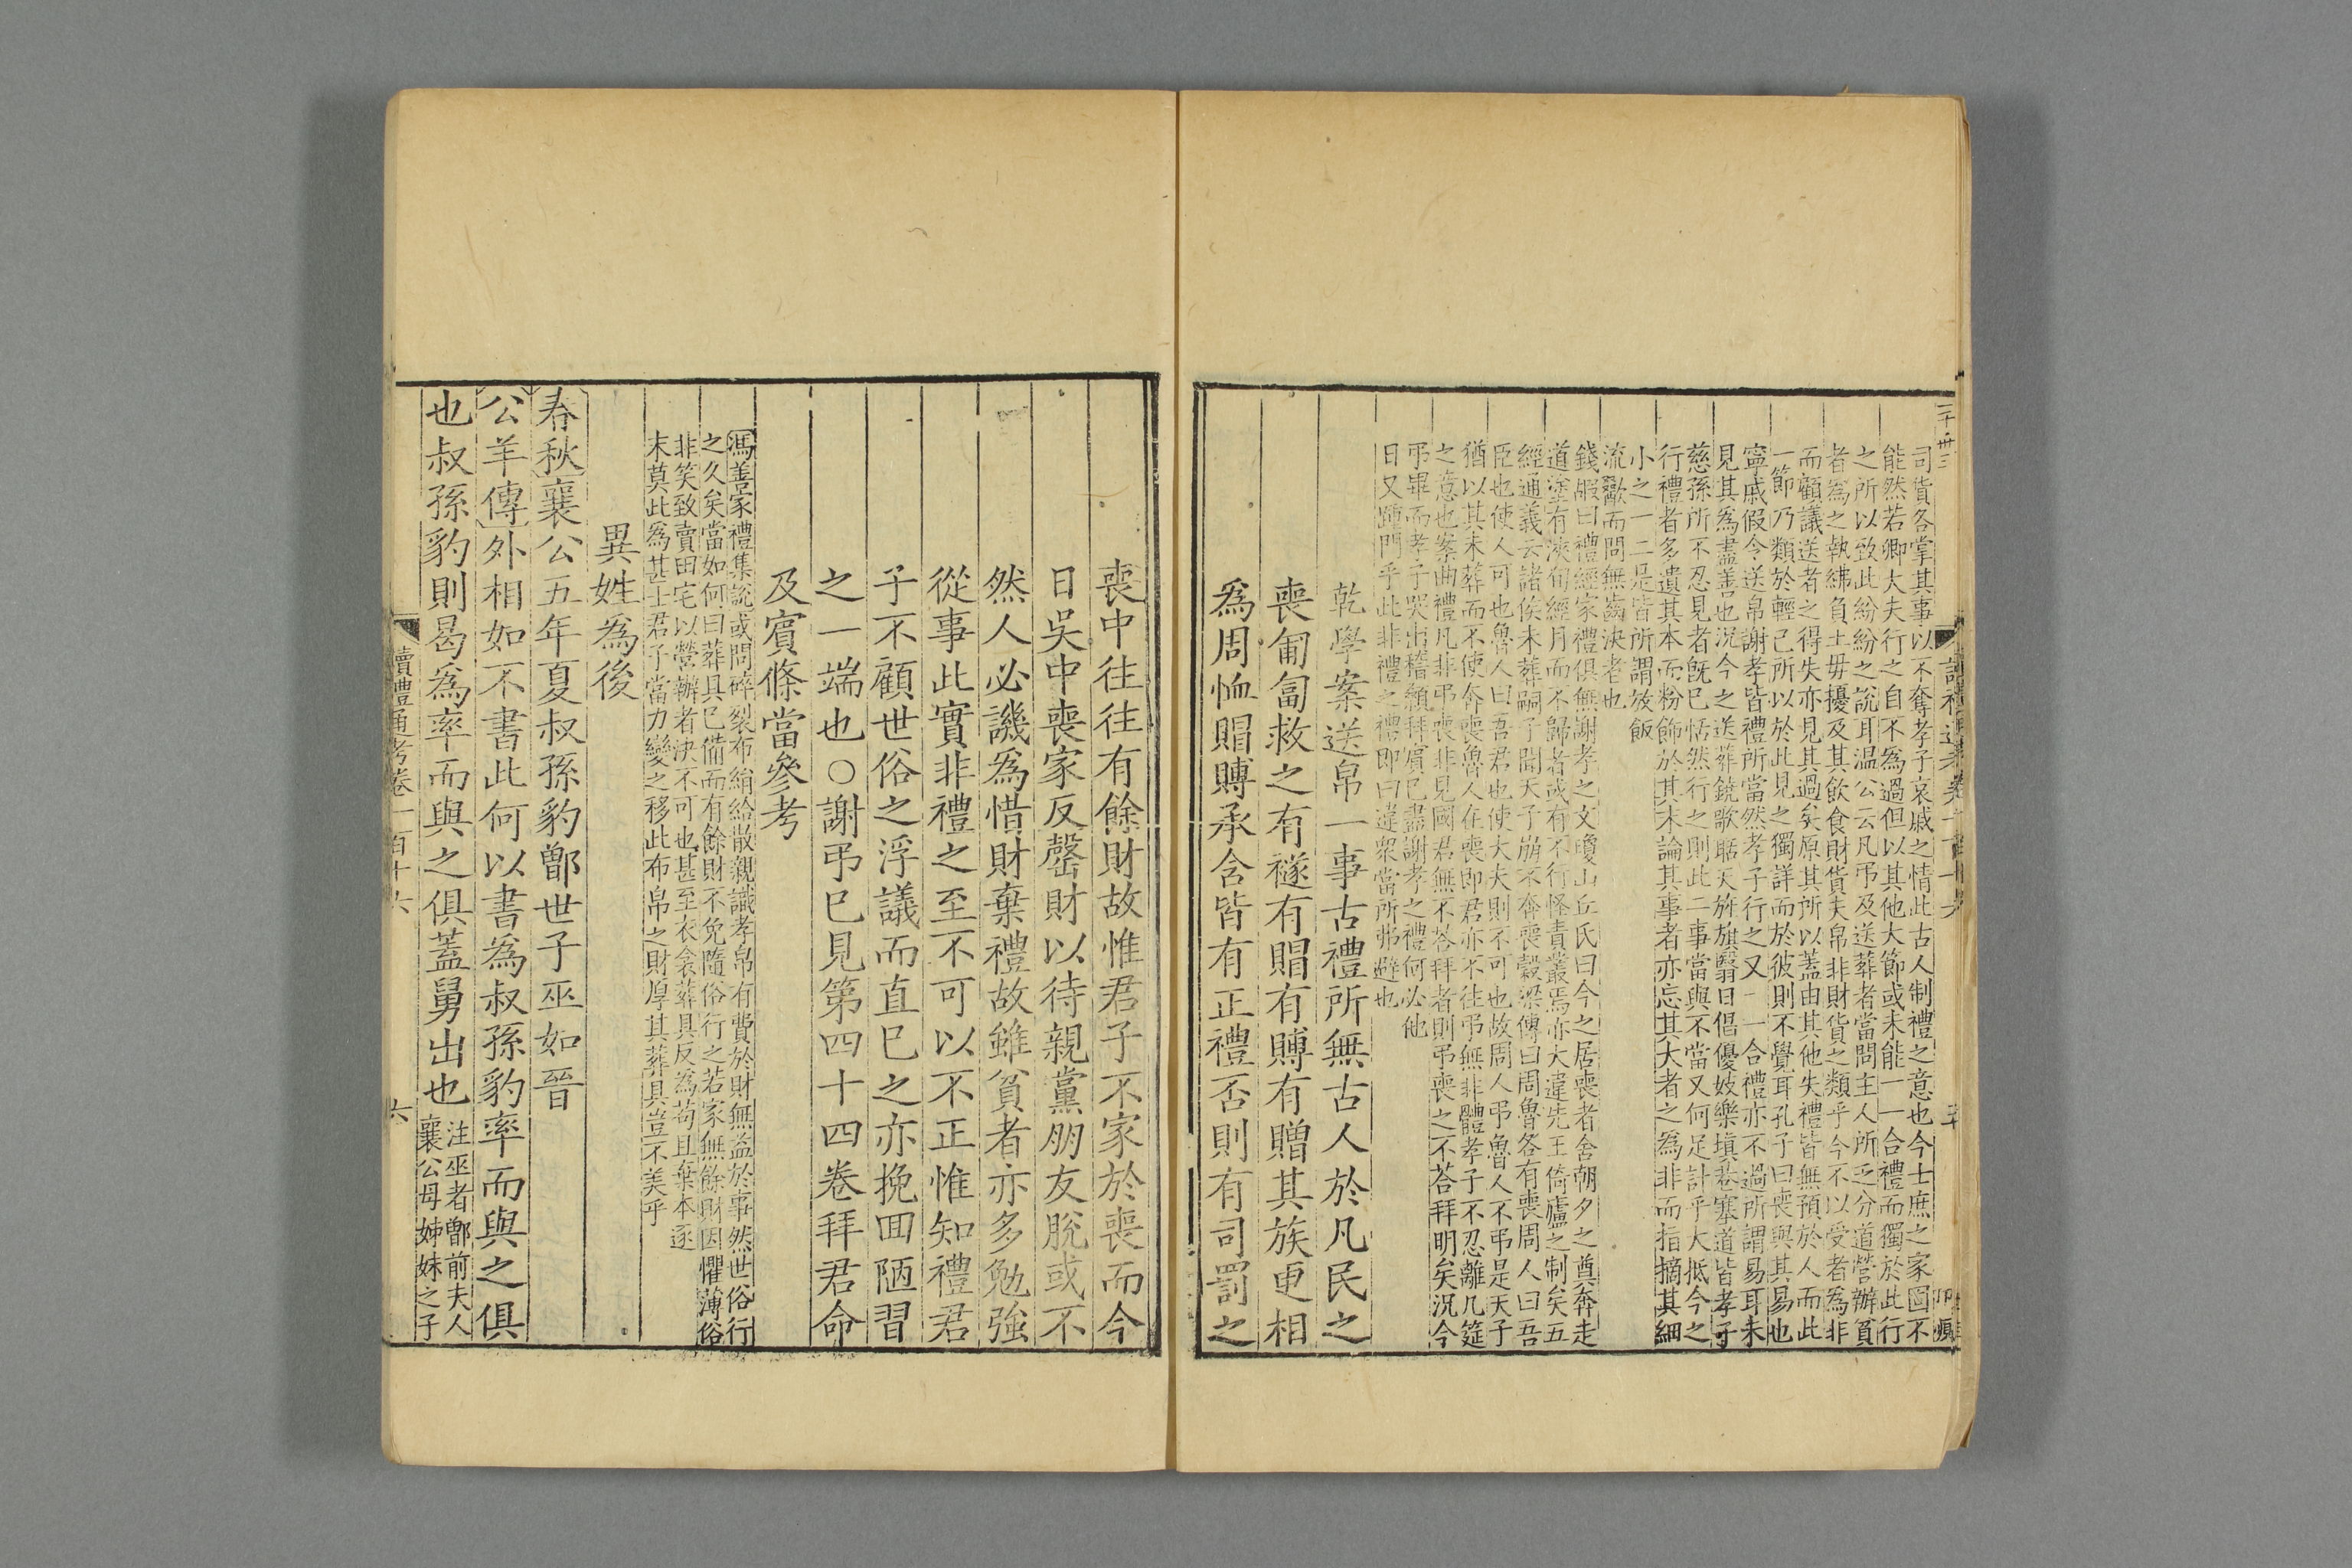 司貨各掌其事以不奪孝子哀戚之情此古人制禮之意也今士庶之家固不
能然若卿大夫行之自不為過但以其他大節或未能一一合禮而獨於此行
之所以致此紛紛之說耳温公云凡弔及送葬者當問主人所乏分道營辦貧
者為之執紼負土毋擾及其飲食財貨夫帛非財貨之類乎今不以受者為非
而顧議送者之得失亦見其過矣原其所以蓋由其他失禮皆無預於人而此
一節乃類於輕己所以於此見之獨詳而於彼則不覺耳孔子曰喪與其易也
寧戚假令送帛謝孝皆禮所當然孝子行之又一一合禮亦不過所謂易耳未
見其爲盡善也況今之送葬鐃歌聒天旂旗翳日倡優妓樂塡巷塞道皆孝子
慈孫所不忍見者旣已恬然行之則此二事當與不當又何足計乎大抵今之
行禮者多遺其本而粉飾於其末論其事者亦忘其大者之為非而指摘其細
小之一二是皆所謂放飯
流歠而問無齒決者也
錢嘏曰禮經家禮俱無謝孝之文瓊山丘氏曰今之居喪者舍朝夕之奠奔走
道塗有浹旬經月而不歸者或有不行怪責叢焉亦大違先王倚廬之制矣五
經通義云諸侯未葬嗣子聞天子崩不奔喪穀梁傳曰周魯各有喪周人曰吾
臣也使人可也魯人曰吾君也使大夫則不可也故周人弔魯人不弔是天子
猶以其未葬而不使奔喪魯人在喪即君亦不往弔無非體孝子不忍離几筵
之意也案曲禮凡非弔喪非見國君無不荅拜者則弔喪之不荅拜明矣況今
弔畢而孝子哭出稽顙拜賓已盡謝孝之禮何必他
日又踵門乎此非禮之禮即曰違衆當所弗避也
乾學案送帛一事古禮所無古人於凡民之
喪匍匐救之有襚有賵有賻有贈其族更相
爲周恤賵賻承含皆有正禮否則有司罰之
喪中往往有餘財故惟君子不家於喪而今
日吳中喪家反罄財以待親黨朋友脫或不
然人必譏爲惜財棄禮故雖貧者亦多勉強
從事此實非禮之至不可以不正惟知禮君
子不顧世俗之浮議而直已之亦挽回陋習
之一端也○謝弔已見第四十四卷拜君命
及賓條當參考
馮善家禮集說或問碎裂布絹給散親識孝帛有費於財無益於事然世俗行
之久矣當如何曰葬具已備而有餘財不免隨俗行之若家無餘財因懼薄俗
非笑致賣田宅以營辦者決不可也甚至衣衾葬具反為苟且棄本逐
末莫此爲甚士君子當力變之移此布帛之財厚其葬具豈不美乎
異姓爲後
春秋襄公五年夏叔孫豹鄫世子巫如晉
公羊傳外相如不書此何以書爲叔孫豹率而與之俱
也叔孫豹則曷爲率而與之俱蓋舅出也注巫者鄫前夫人
襄公母姊妹之子
讀禮通考卷一百十六
六